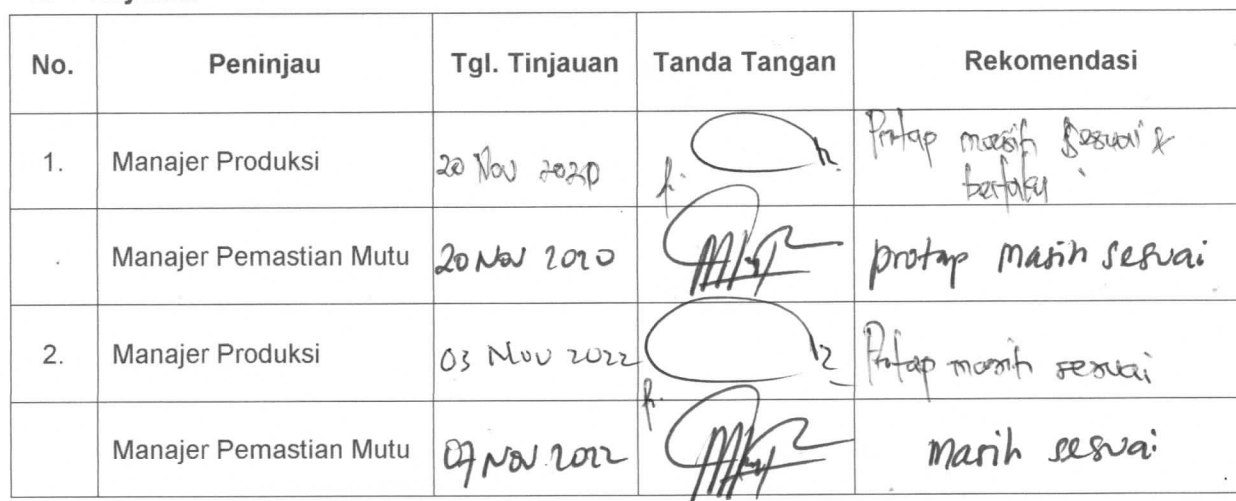 No. Peninjau Tgl. Tinjauan Tanda Tangan Rekomendasi
1. Manajer Produksi 20 Nov 2020 Protap masih sesuai &
berlaku
Manajer Pemastian Mutu 20 Nov 2020 protap masih sesuai
2. Manajer Produksi 03 Nov 2022 Protap masih sesuai
Manajer Pemastian Mutu 07 Nov 2022 masih sesuai